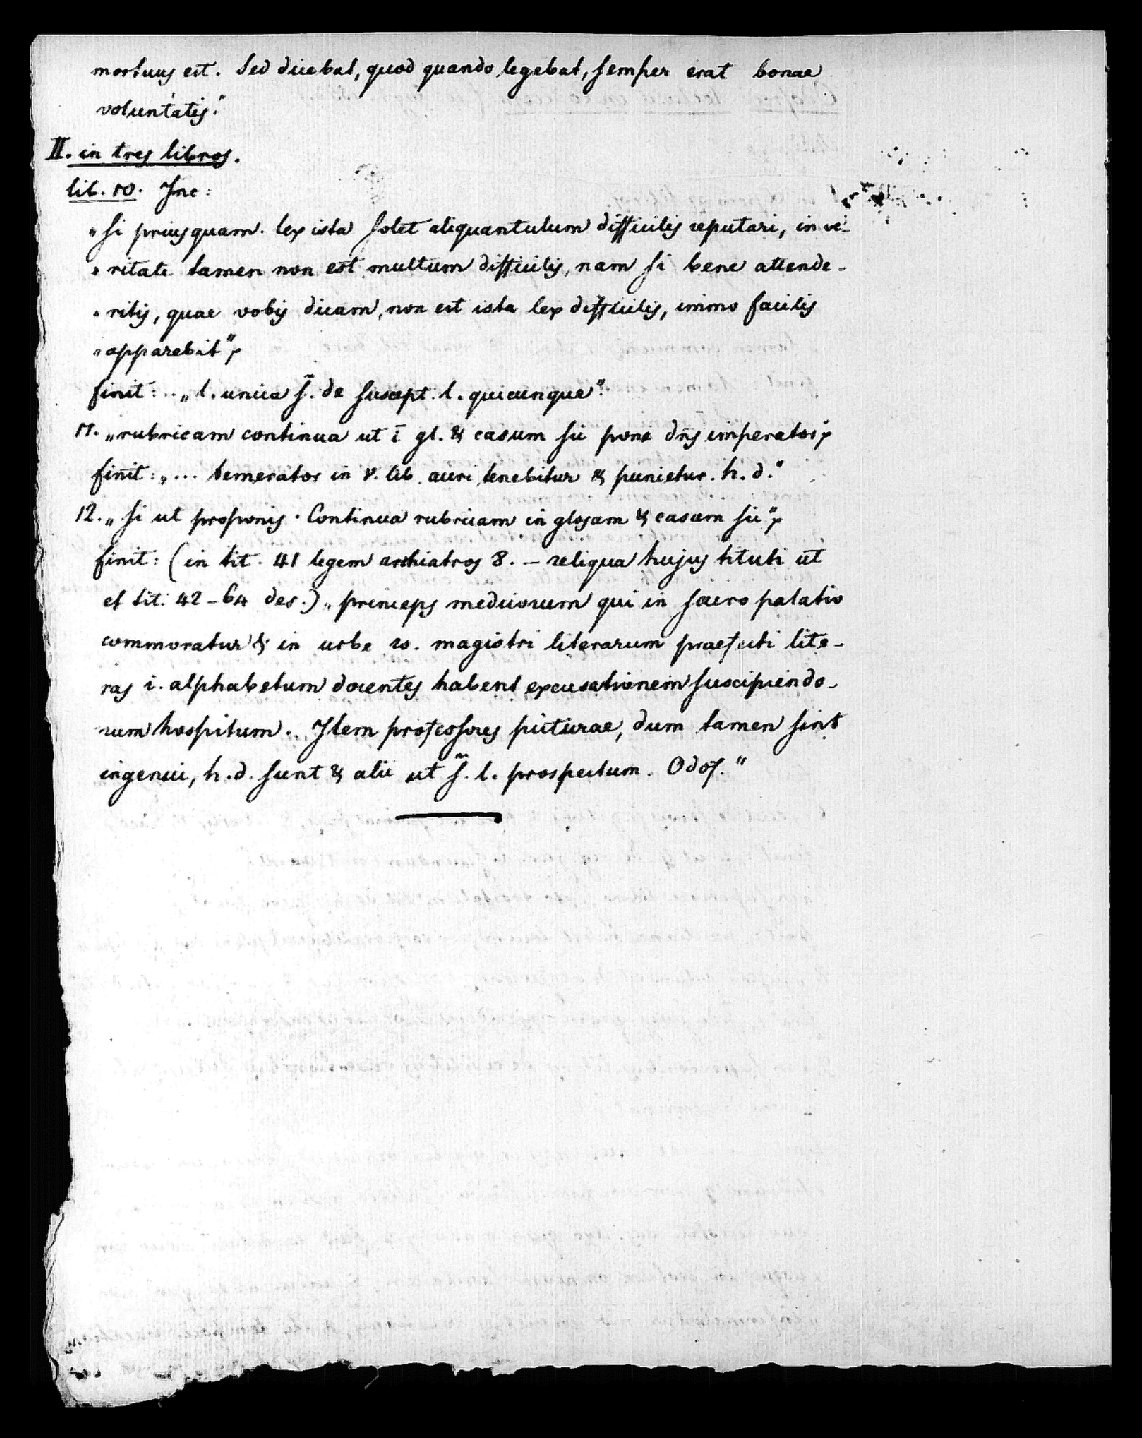 mortuus est. Sed dicebat, quod quando legebat, semper erat bonae
voluntatis."
II. in tres libros.
lib. 10. Inc:
"Si priusquam. lex ista solet aliquantulum difficilis reputari, in ve-
"ritate tamen non est multum difficilis, nam si bene attende-
"ritis, quae vobis dicam, non est ista lex difficilis, immo facilis
"apparebit";
finit: .. „l. unica s̄. de suscept. l. quicunque"
11. „rubricam continua ut ī gl. & casum sic pone dn̄s imperator";
finit: „... temerator in v. lib. auri tenebitur & punietur. h. d."
12. „Si ut proponis. Continua rubricam in glosam & casum sic";
finit: (in tit. 41 legem archiatros 8. – reliqua hujus tituli ut
et tit. 42–64 des.) „princeps medicorum qui in sacro palatio
commoratur & in urbe ro. magistri literarum praefecti lite-
ras i. alphabetum docentes habent excusationem suscipiendo-
rum hospitum.. Item professores picturae, dum tamen sint
ingenui, h. d. sunt & alii ut s̄. l. prospectum. Odof."